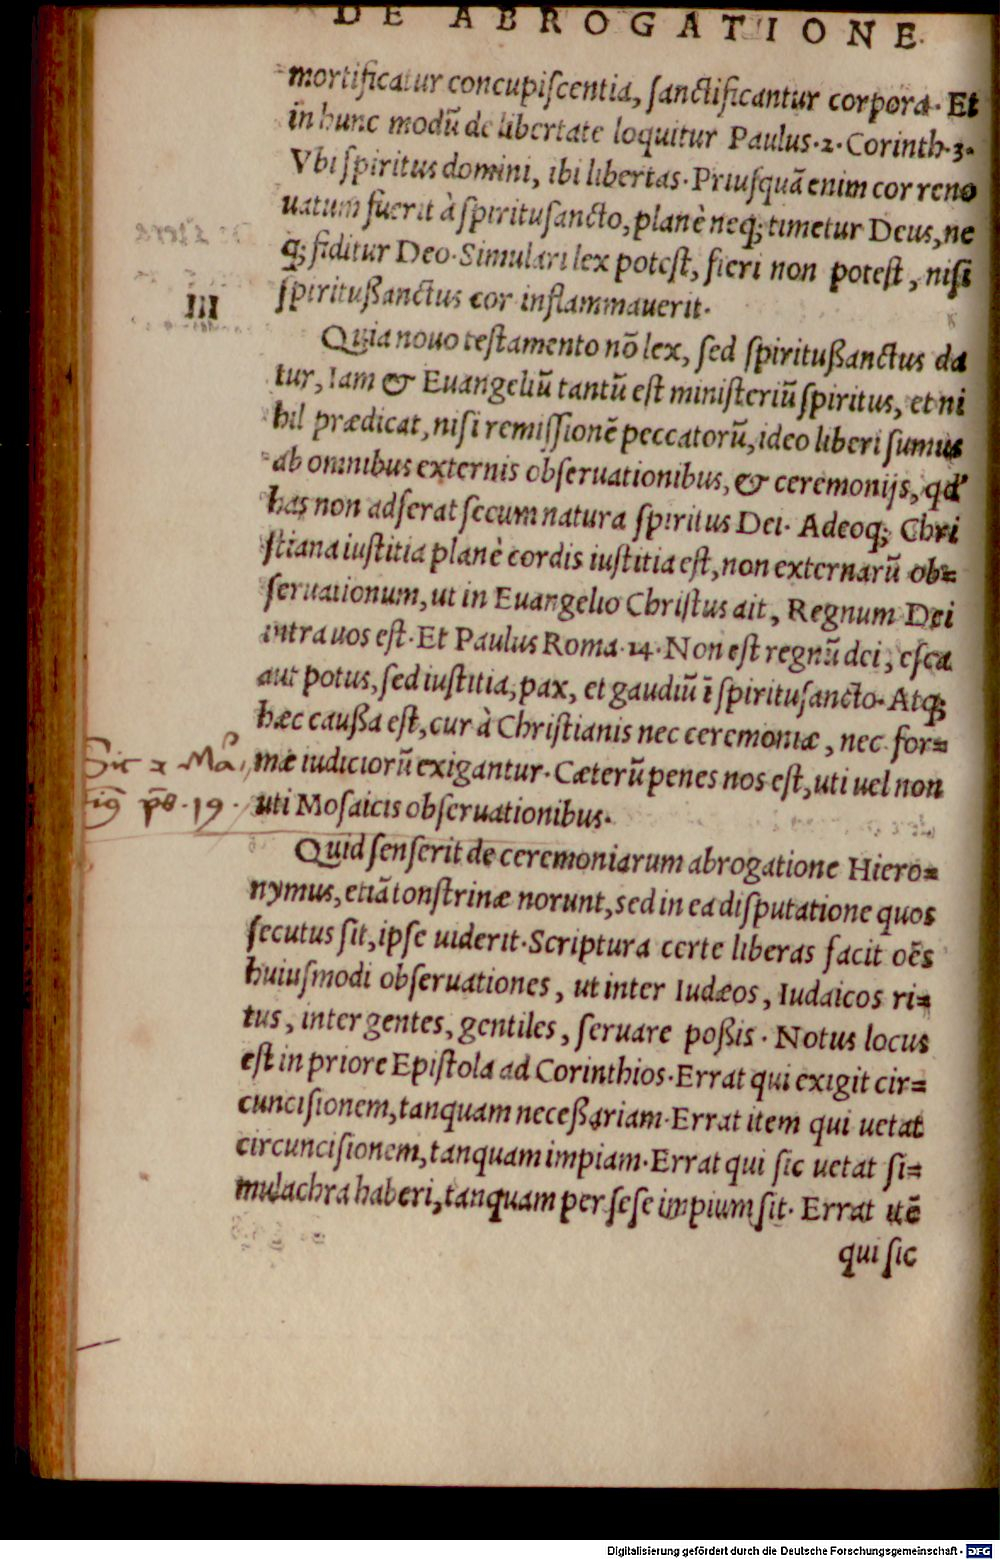 DE ABROGATIONE
mortificatur concupiſcentia, ſanctificantur corpora. Et
in hunc modũ de libertate loquitur Paulus.2.Corinth.3.
Vbi ſpiritus domini, ibi libertas. Priuſquã enim cor reno
uatum fuerit à ſpirituſancto, planè neq; timetur Deus, ne
q; fiditur Deo. Simulari lex poteſt, fieri non poteſt, niſi
ſpiritußanctus cor inflammauerit.
III
Quia nouo teſtamento nõ lex, ſed ſpiritußanctus da
tur, Iam & Euangeliũ tantũ eſt miniſteriũ ſpiritus, et ni
hil prædicat, niſi remiſſionẽ peccatorũ, ideo liberi ſumus
ab omnibus externis obſeruationibus, & ceremonijs, qd'
has non adferat ſecum natura ſpiritus Dei. Adeoq; Chri
ſtiana iuſtitia planè cordis iuſtitia eſt, non externarũ ob=
ſeruationum, ut in Euangelio Chriſtus ait, Regnum Dei
intra uos eſt. Et Paulus Roma.14. Non eſt regnũ dei, eſca
aut potus, ſed iuſtitia, pax, et gaudiũ ĩ ſpirituſancto. Atq;
hæc cauſſa eſt, cur à Chriſtianis nec ceremoniæ, nec for=
mæ iudiciorũ exigantur. Cæterũ penes nos eſt, uti uel non
uti Moſaicis obſeruationibus.
Quid ſenſerit de ceremoniarum abrogatione Hiero=
nymus, etiã tonſtrinæ norunt, sed in ea diſputatione quos
ſecutus ſit, ipſe uiderit. Scriptura certe liberas facit oẽs
huiuſmodi obſeruationes, ut inter Iudæos, Iudaicos ri=
tus, inter gentes, gentiles, ſeruare poßis. Notus locus
eſt in priore Epiſtola ad Corinthios. Errat qui exigit cir=
cunciſionem, tanquam neceßariam. Errat item qui uetat
circunciſionem, tanquam impiam. Errat qui ſic uetat ſi=
mulachra haberi, tanquam per ſeſe impium ſit. Errat itẽ
qui ſic
Digitalisierung gefördert durch die Deutsche Forschungsgemeinschaft - DFG